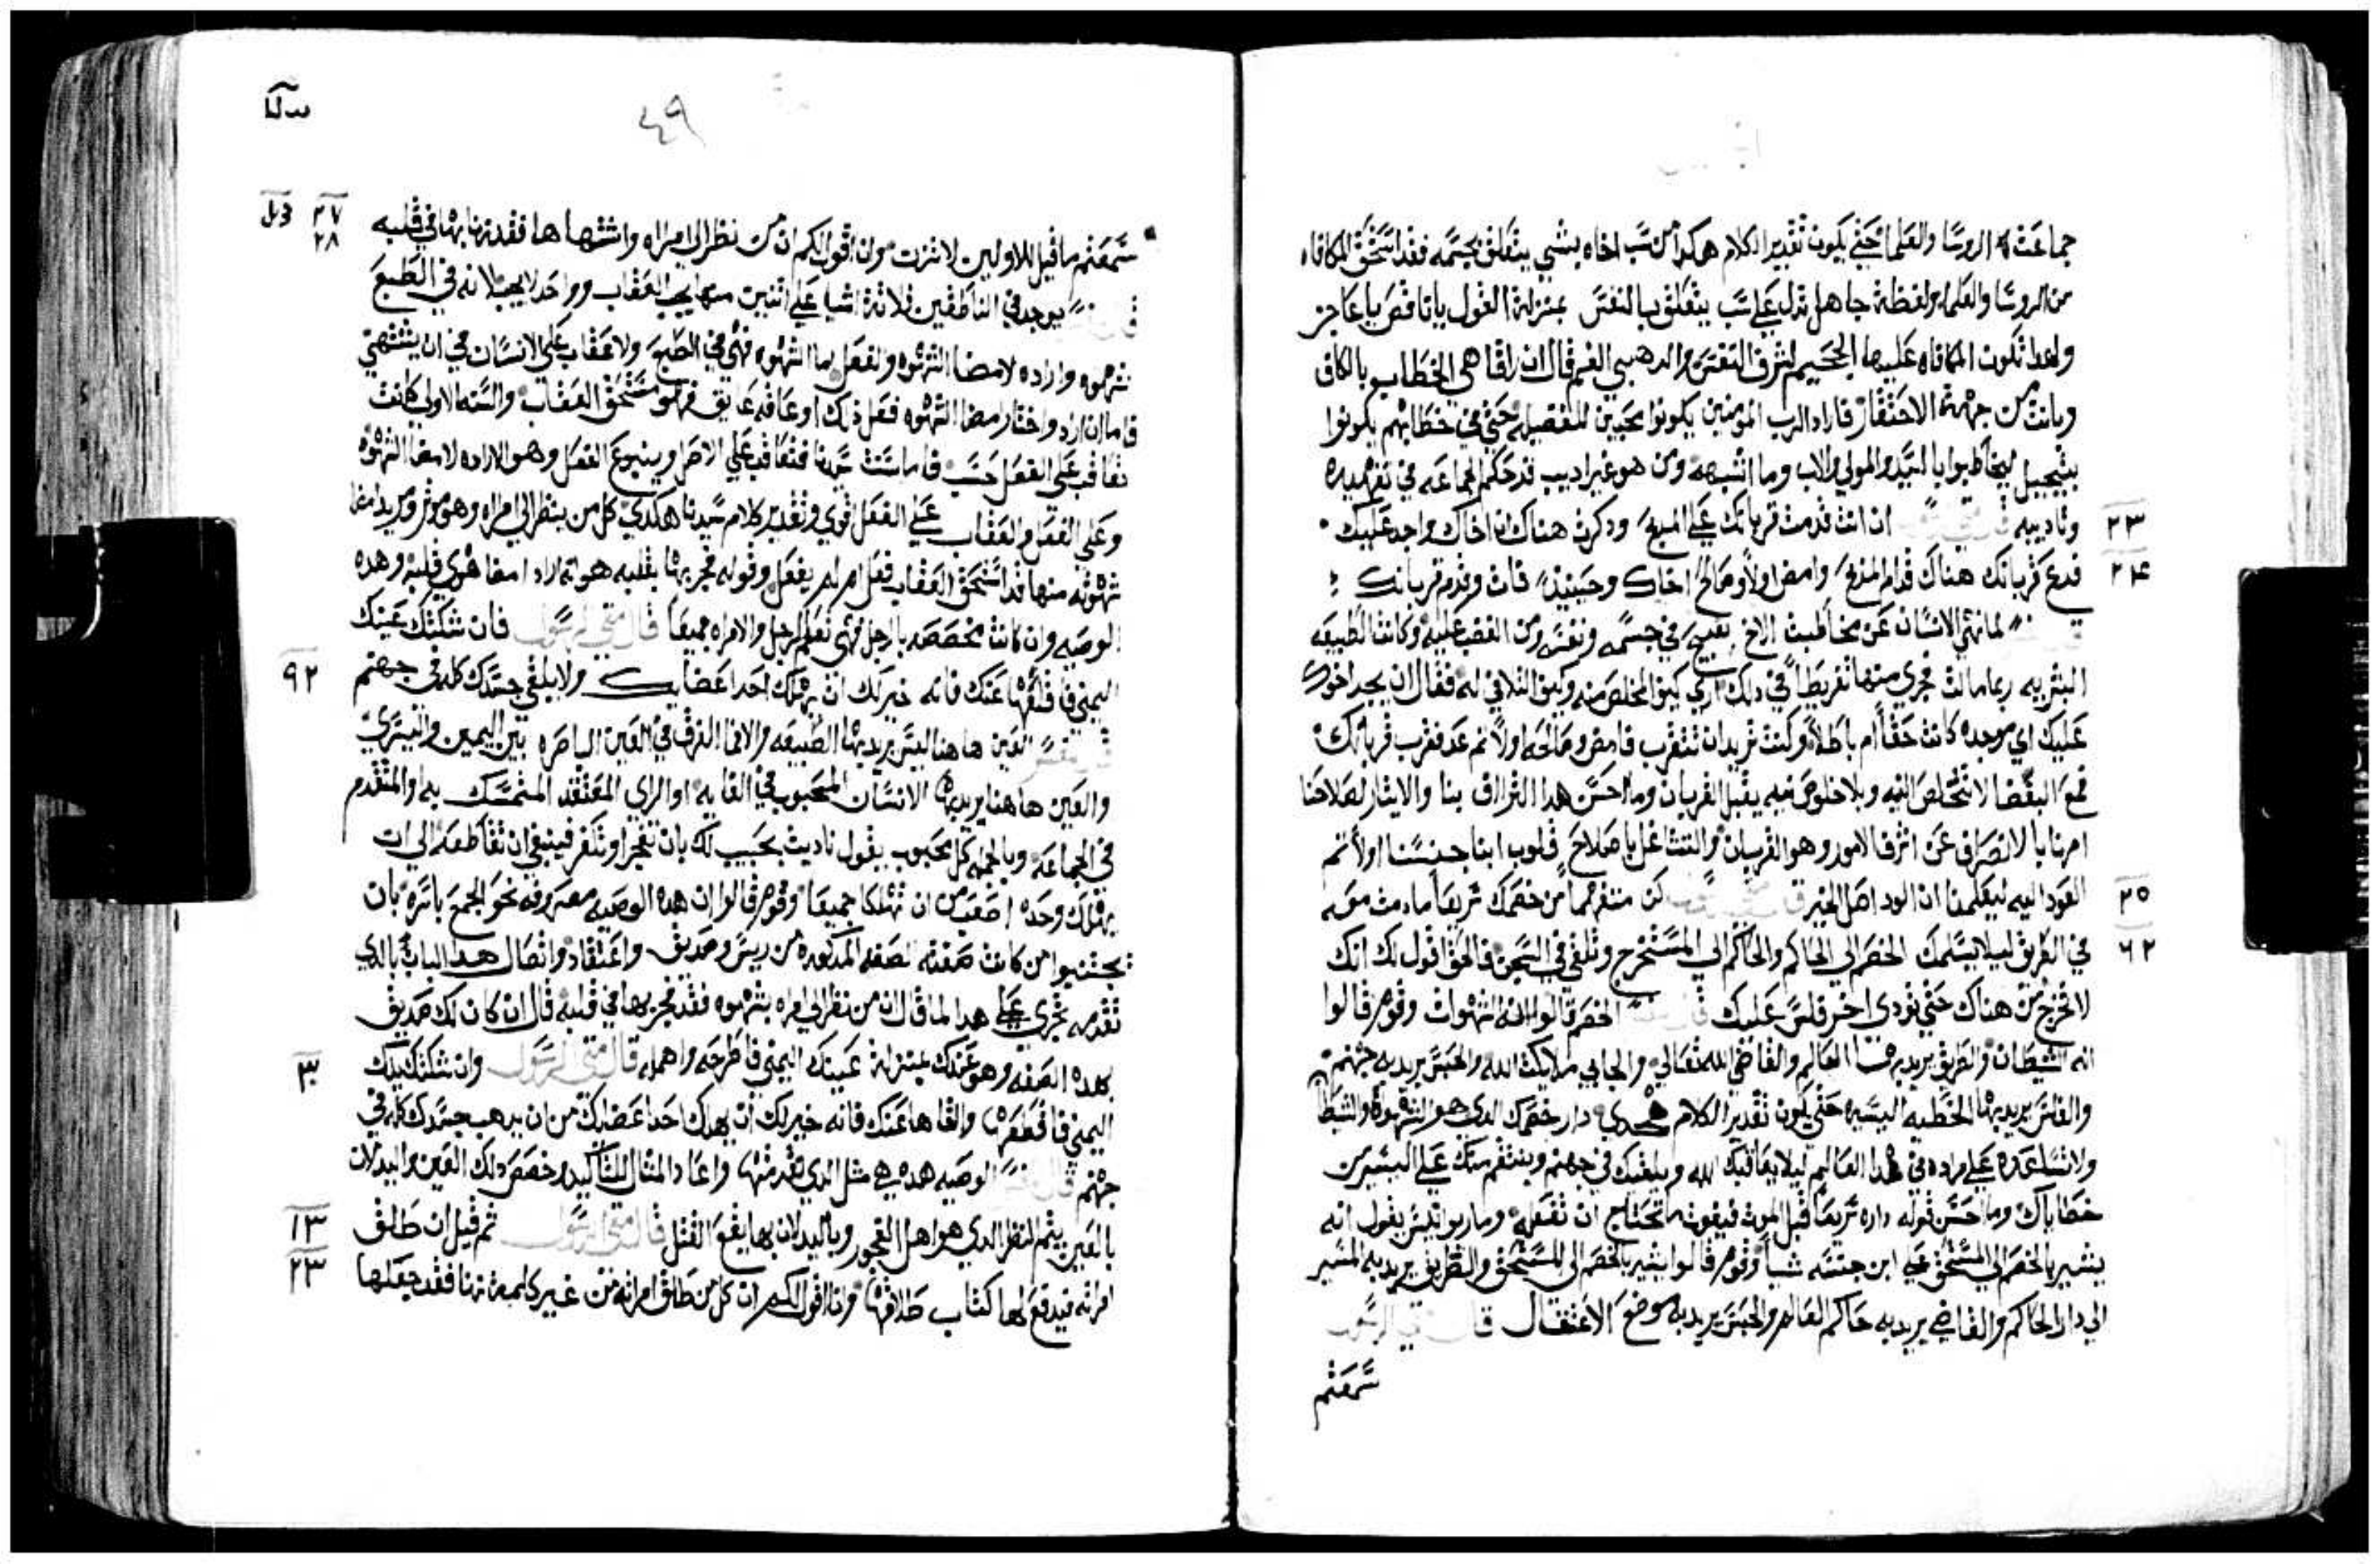 جماعة الروسا والعلما حتي يكون تقدير الكلام هكدا من سب اخاه بشي يتعلق بجسمه فقد استحق المكافاه
من الروسا والعلما ولفظة جاهل تدل علي سب يتعلق بالنفس بمنزلة القول ياناقص ياعاجز
ولهدا تكون المكافاه عليها الجحيم لشرف النفس والدهبي الفم قال ان راقا هي الخطاب بالكاف
وبانت من جهة الاحتقار فاراد الرب المومنين يكونوا محبين للفضيله حتي في خطابهم يكونوا
بتبجيل ليخاطبوا بالسيد والمولي والاب وما اشبهه ومن هو غير اديب قد حكم الجماعه في تهديده
وتاديبه قال متي الرسول ان انت قدمت قربانك علي المدبح ودكرت هناك ان اخاك واجد عليك
٢٣
فدع قربانك هناك قدام المدبح وامض اولا وصالح اخاك وحينيد فات وقدم قربانك
٢٤
لما نهي الانسان عن مخاطبت الاخ بقبيح في جسمه ونفسه ومن الغضب عليه وكانت الطبيعه
البشريه ربما مالت فجري منها تفريطا في دلك اري كيف المخلص منه وكيف التلافي له فقال ان يجد اخوك
عليك اي موجده كانت حقا ام باطلا وكنت تريد ان تتقرب فامض وصالحه اولا تم عد فقرب قربانك
فمع البغضا لا تتخلص النيه وبلا خلوص نيه يقبل القربان وما احسن هدا التراأف بنا والايثار لصلاحنا
امرنا بالانصراف عن اشرف الامور وهو القربان والتشاغل باصلاح قلوب ابنا جنسنا اولا تم
العود اليه ليعلمنا ان الود اصل الخير قال متي الرسول كن متفهما من خصمك سريعا مادمت معه
٢٥
في الطريق ليلا يسلمك الخصم الي الحاكم والحاكم الي المستخرج وتلقي في السجن فالحق اقول لك انك
٢٦
لا تخرج من هناك حتي تودي اخر فلس عليك الخصم قالوا انه الشهوات وقوم قالوا
انه الشيطان والطريق يريد به هدا العالم والقاضي الله تعالي والجابي ملايكت الله والحبس يريد به جهنم
والفلس يريد بها الخطيه اليسيره حتي يكون تقدير الكلام هكدي دار خصمك الدي هو الشهوة والشيطان
ولا تساعده علي مراده في هدا العالم ليلا يعاقبك الله ويلقيك في جهنم وينتقم منك علي اليسير من
خطاياك وما احسن قوله داره سريعا قبل الموت فيفوت ما تحتاج ان تفعله وماريوانيس يقول انه
يشير بالخصم الي المستحق عليه ابن جنسه شيا وقوم قالوا يشير بالخصم الي المستحق والطريق يريد به المسير
الي دار الحاكم والقاضي يريد به حاكم العالم والحبس يريد به موضع الاعتقال قال متي الرسول
سمعتم
٤٩
سمعتم ما قيل للاولين لا تزن وانا اقول لكم ان من نظر الي امراه واشتهاها فقد زنا بها في قلبه
٢٧
٢٨
يوجد في الناطقين ثلاثة اشيا علي اتنين منها يجب العقاب وواحد لا يجب لانه في الطبع
شهوه واراده لامضا الشهوه والفعل اما الشهوه فهي في الطبع ولا عقاب علي الانسان في ان يشتهي
فاما ان اراد واختار امضا الشهوه فعل دلك او عاقه عايق فهو مستحق العقاب والسنه الاولي كانت
تعاقب علي الفعل حسب فاما سنت سيدنا فتعاقب علي الاصل وينبوع الفعل وهو الاراده لامضا الشهوه
وعلي الفعل والعقاب علي الفعل قوي وتقدير كلام سيدنا هكدي كل من ينظر الي امراه وهو موثر ويريد امضا
شهوته منها قد استحق العقاب فعل ام لم يفعل وقوله فجر بها بقلبه هو انه اراد امضا هوي قلبه وهده
الوصيه وان كانت مخصصه بالرجل فهي تعلم الرجل والامراه جميعا قال متي الرسول فان شكتك عينك
اليمني فاقلعها عنك فانه خير لك ان يهلك احد اعضايك ولا يلقي جسدك كله في جهنم
٢٩
العين هاهنا ليس يريد بها الطبيعه والا فما الفرق في العين الباصره بين اليمين واليسري
والعين هاهنا يريد بها الانسان المحبوب في الغايه او الراي المعتقد المتمسك به والمتقدم
في الجماعه وبالجمله كل محبوب يقول ناديت بحبيب لك بان تفجر او تكفر فينبغي ان تقاطعه الي ان
يهلك وحده اصعب من ان تهلكا جميعا وقوم قالوا ان هده الوصيه مصروفه نحو الجمع باسره بان
يجتنبوا من كانت صفته الصفه المدكوره من ريس وصديق واعتقاد واتصال هدا الباب بالدي
تقدمه تجري علي هدا لما قال ان من نظر الي امراه بشهوه فقد فجر بها في قلبه قال ان كان لك صديق
بهده الصفه وهو عندك بمنزلة عينك اليمني فاطرحه واهمله قال متي الرسول وان شكتك يدك
٣٠
اليمني فاقطعها والقاها عنك فانه خير لك ان يهلك احد اعضايك من ان يدهب جسدك كله في
جهنم الوصيه هده هي مثل الدي تقدمتها واعاد المثال للتاكيد وخصص دلك العين واليد لان
بالعين يتم النظر الدي هو اصل الفجور وباليد لان بها يقع القتل قال متي الرسول ثم قيل ان طلق
٣١
امراته فيدفع لها كتاب طلاقها وانا اقول لكم ان كل من طلق امراته من غير كلمة زنا فقد جعلها
٣٢